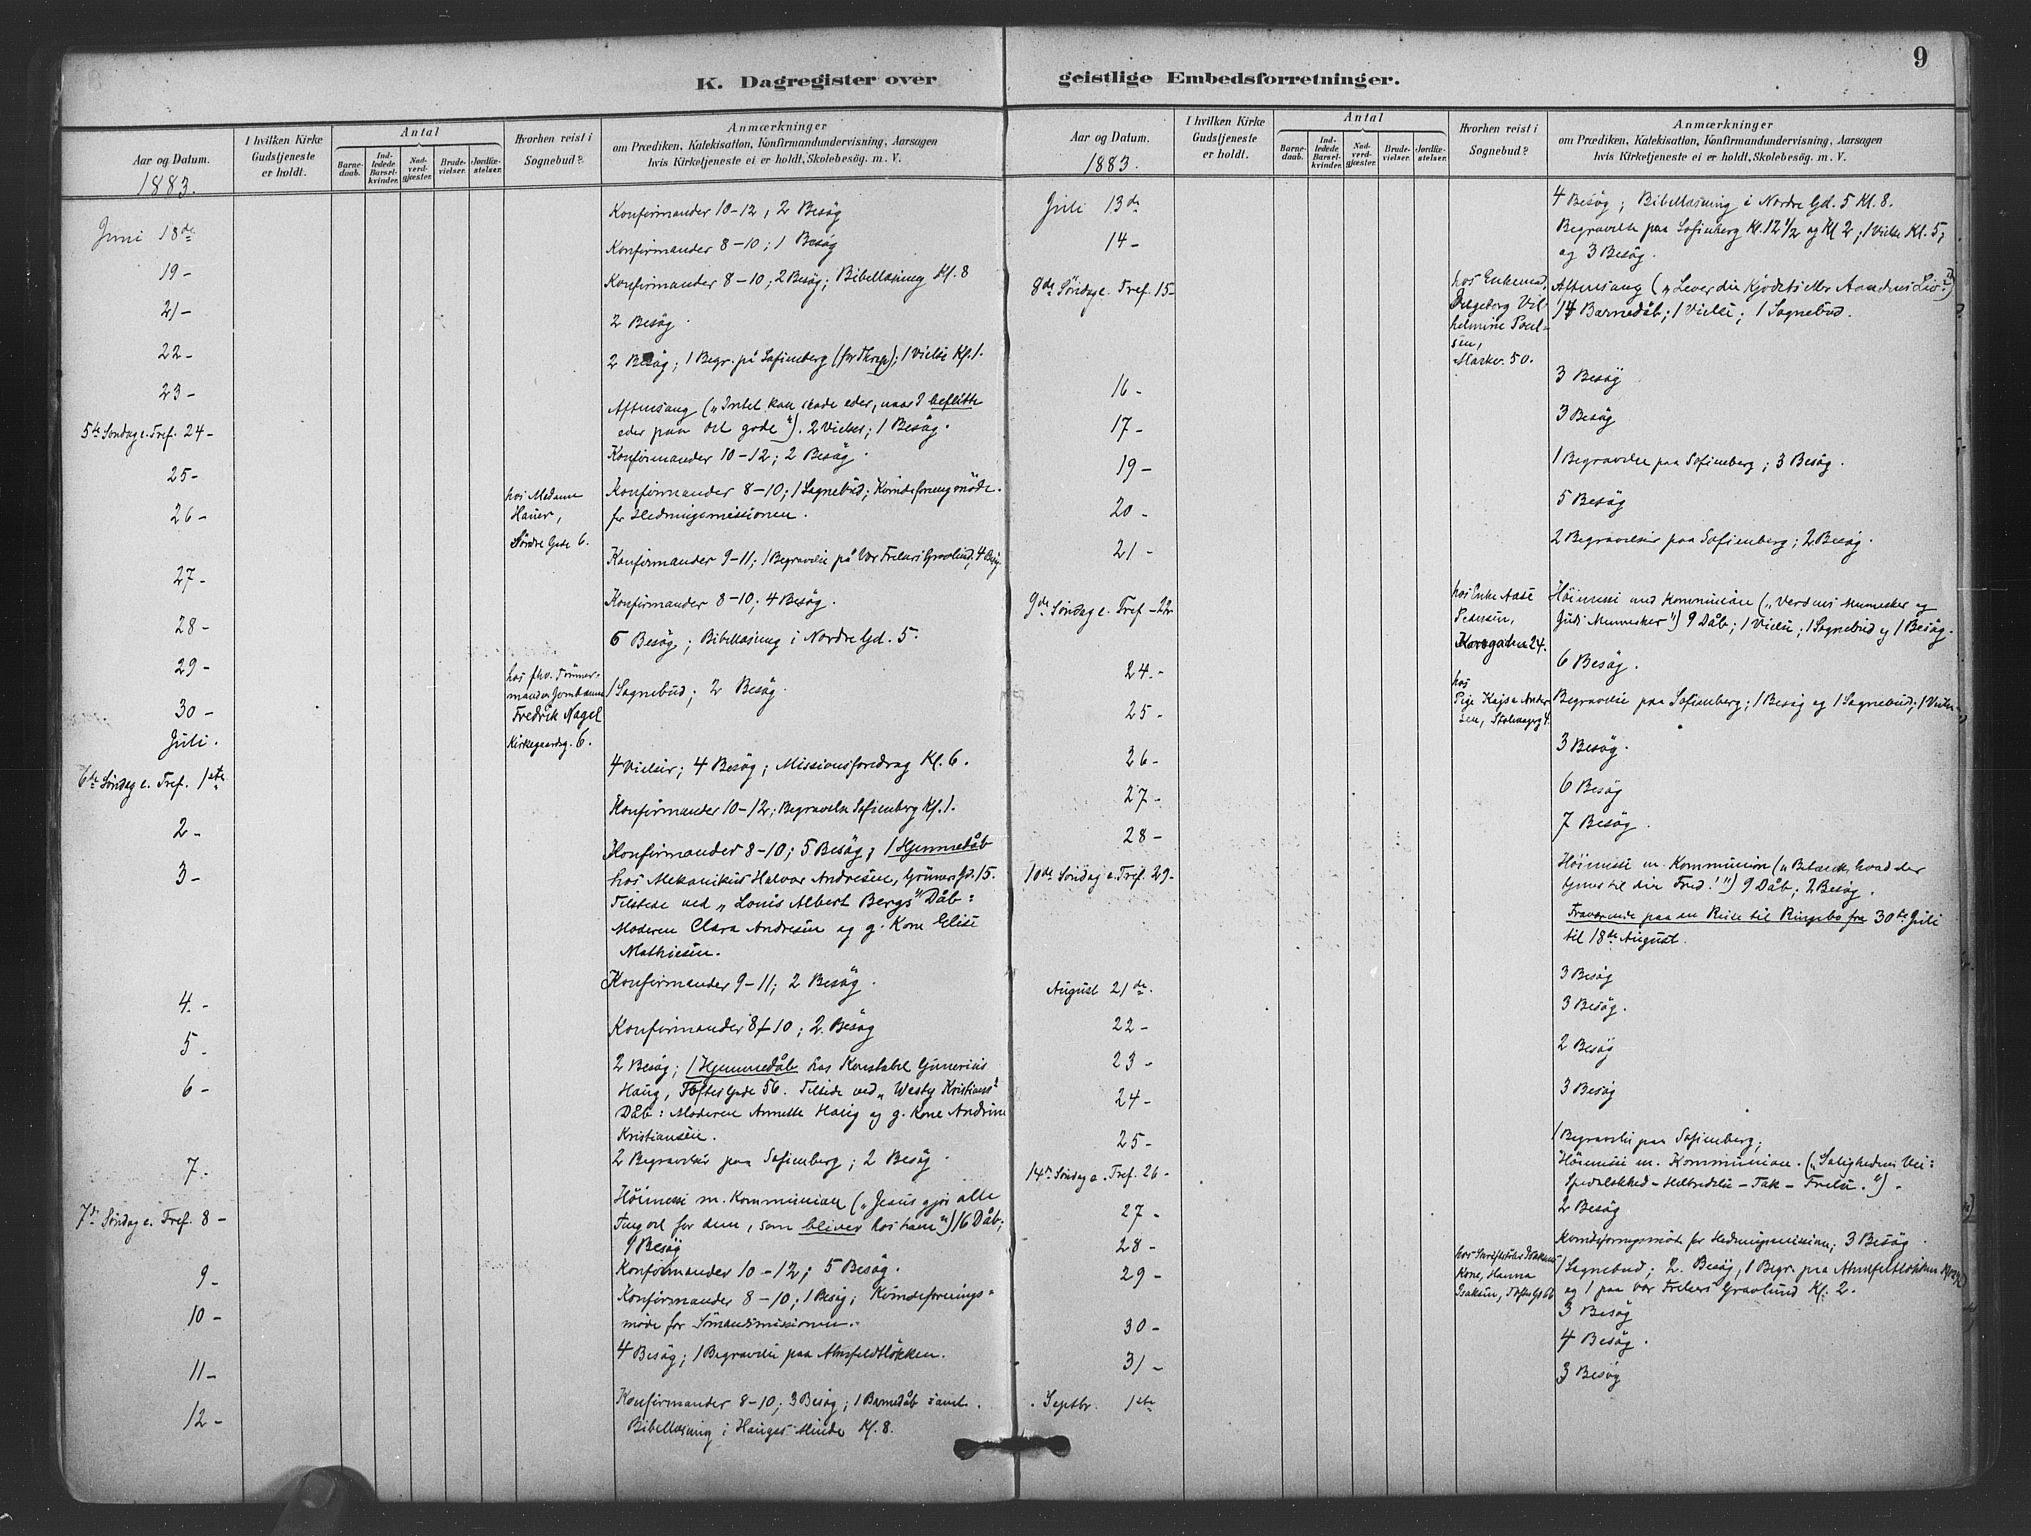 9
K. Dagregister over geistlige Embedsforretninger.
Aar og Datum.
1883.
I hvilken Kirke
Gudstjeneste
er holdt.
Antal
Barne-
daab.
Ind-
ledede
Barsel-
kvinder.
Nad-
verd-
gjæster.
Brude-
vielser.
Jordfæ-
stelser.
Hvorhen reist i
Sognebud?
Anmærkninger
om Prædiken, Katekisation, Konfirmandundervisning, Aarsagen
hvis Kirketjeneste ei er holdt, Skolebesög. m. V.
Juni 18de
Konfirmander 10-12; 2 Besög
19-
Konfirmander 8-10; 1 Besög
21-
Konfirmander 8-10; 2 Besög; Bibellæsning Kl. 8
22-
2 Besög.
23-
2 Besög; 1 Begr. på Sofienberg; 1 Vielse Kl. 1.
5te Söndag e. Tref. 24-
Aftensang („Intet kan skade eder, naar I beflitte
eder paa det gode"). 2 Vielser; 1 Besög.
25-
Konfirmander 10-12; 2 Besög.
26-
hos Madame
Hauer,
Söndre Gade 6.
Konfirmander 8-10; 1 Sognebud; Kvindeforeningsmöde
for Hedningemissionen.
27-
Konfirmander 9-11; 1 Begravelse på Vor Frelsers Gravlund, 4 Besög.
28-
Konfirmander 8-10; 4 Besög.
29-
6 Besög; Bibellæsning i Nordre Gd. 5.
30-
hos fhv. Tömmer-
mand
Fredrik Nagel
Kirkegaardsg. 6.
1 Sognebud; 2 Besög.
Juli.
6te Söndag e. Tref. 1ste
4 Vielser; 4 Besög; Missionsforedrag Kl. 6.
2-
Konfirmander 10-12; Begravelse Sofienberg Kl. 1.
3-
Konfirmander 8-10; 5 Besög; 1 Hjemmedåb
hos Mekanikus Halvor Andresen, Grüners Gd. 15.
Tilstede ved „Louis Albert Bergs" Dåb:
Moderen Clara Andresen og g. Kone Elise
Mathiesen.
4.-
Konfirmander 9-11; 2 Besög.
5-
Konfirmander 8-10; 2 Besög
6-
2 Besög; 1 Hjemmedåb hos Konstabel Gunerius
Haug, Toftes Gade 56. Tilstede ved „Westy Kristians"
Dåb: Moderen Annette Haug og g. Kone Andrine
Kristiansen.
7.
2 Begravelser paa Sofienberg; 2 Besög.
7de Söndag e. Tref. 8-
Höimesse m. Kommunion („Jesus gjör alle
Ting vel for dem, som bliver hos ham") 16 Dåb;
9 Besög
9-
Konfirmander 10-12; 5 Besög.
10-
Konfirmander 8-10; 1 Besög; Kvindeforenings-
möde for Sömandsmissionen.
11-
4 Besög; 1 Begravelse paa Ahnfeldtlökken.
12-
Konfirmander 8-10; 3 Besög; 1 Barnedåb samt
Bibellæsning i Hauges Minde Kl. 8.
Aar og Datum.
1883
I hvilken Kirke
Gudstjeneste
er holdt.
Antal
Barne-
daab.
Ind-
ledede
Barsel-
kvinder.
Nad-
verd-
gjæster.
Brude-
vielser.
Jordfæ-
stelser.
Hvorhen reist i
Sognebud?
Anmærkninger
om Prædiken, Katekisation, Konfirmandundervisning, Aarsagen
hvis Kirketjeneste ei er holdt, Skolebesög m. V.
Juli 13de
4 Besög; Bibellæsning i Nordre Gd. 5 Kl. 8.
14-
Begravelse paa Sofienberg Kl. 12 1/2 og Kl 2; 1 Vielse Kl. 5;
og 3 Besög.
8de Söndag e. Tref. 15-
hos Enkemad.
Ingeborg Vil-
helmine Poul-
sen,
Markv. 50.
Aftensang („Lever du Kjödets eller Aandens Liv?")
14 Barnedåb; 1 Vielse; 1 Sognebud.
16-
3 Besög
17-
3 Besög
19-
1 Begravelse paa Sofienberg; 3 Besög.
20-
5 Besög
21-
2 Begravelser paa Sofienberg; 2 Besög.
9de Söndag e. Tref. 22
hos Enke Aase
Pedersen,
Korsgaden 24.
Höimesse med Kommunion („Verdens Mennesker og
Guds Mennesker") 9 Dåb; 1 Vielse; 1 Sognebud og 1 Besög.
24.-
6 Besög.
25-
hos
Pige Kajsa Ander-
sen,
Begravelse paa Sofienberg; 1 Besög og 1 Sognebud; 1 Vielse
26-
3 Besög.
27-
6 Besög
28-
7 Besög.
10de Söndag e. Tref. 29-
Höimesse m. Kommunion („Betænk, hvad der
tjener til din Fred!") 9 Dåb; 2 Besög.
Fraværende paa en Reise til Ringebo fra 30te Juli
til 18de August.
August 21de.
3 Besög
22-
3 Besög.
23-
2 Besög
24-
3 Besög
25-
1 Begravelse paa Sofienberg;
14de Söndag e. Tref. 26-
Höimesse m. Kommunion. („Salighedens Vei:
Spedalskhed - Helbredelse - Tak - Frelse.").
27-
2 Besög
28-
Kvindeforeningsmöde for Hedningemissionen; 3 Besög.
29-
hos Isaksens
Kone, Hanna
Isaksen, Toftes Gd 66
1 Sognebud; 2 Besög, 1 Begr. paa Ahnfeltlökken
og 1 paa Vor Frelsers Gravlund Kl. 2.
30-
3 Besög
31-
4 Besög.
Septbr. 1ste
3 Besög